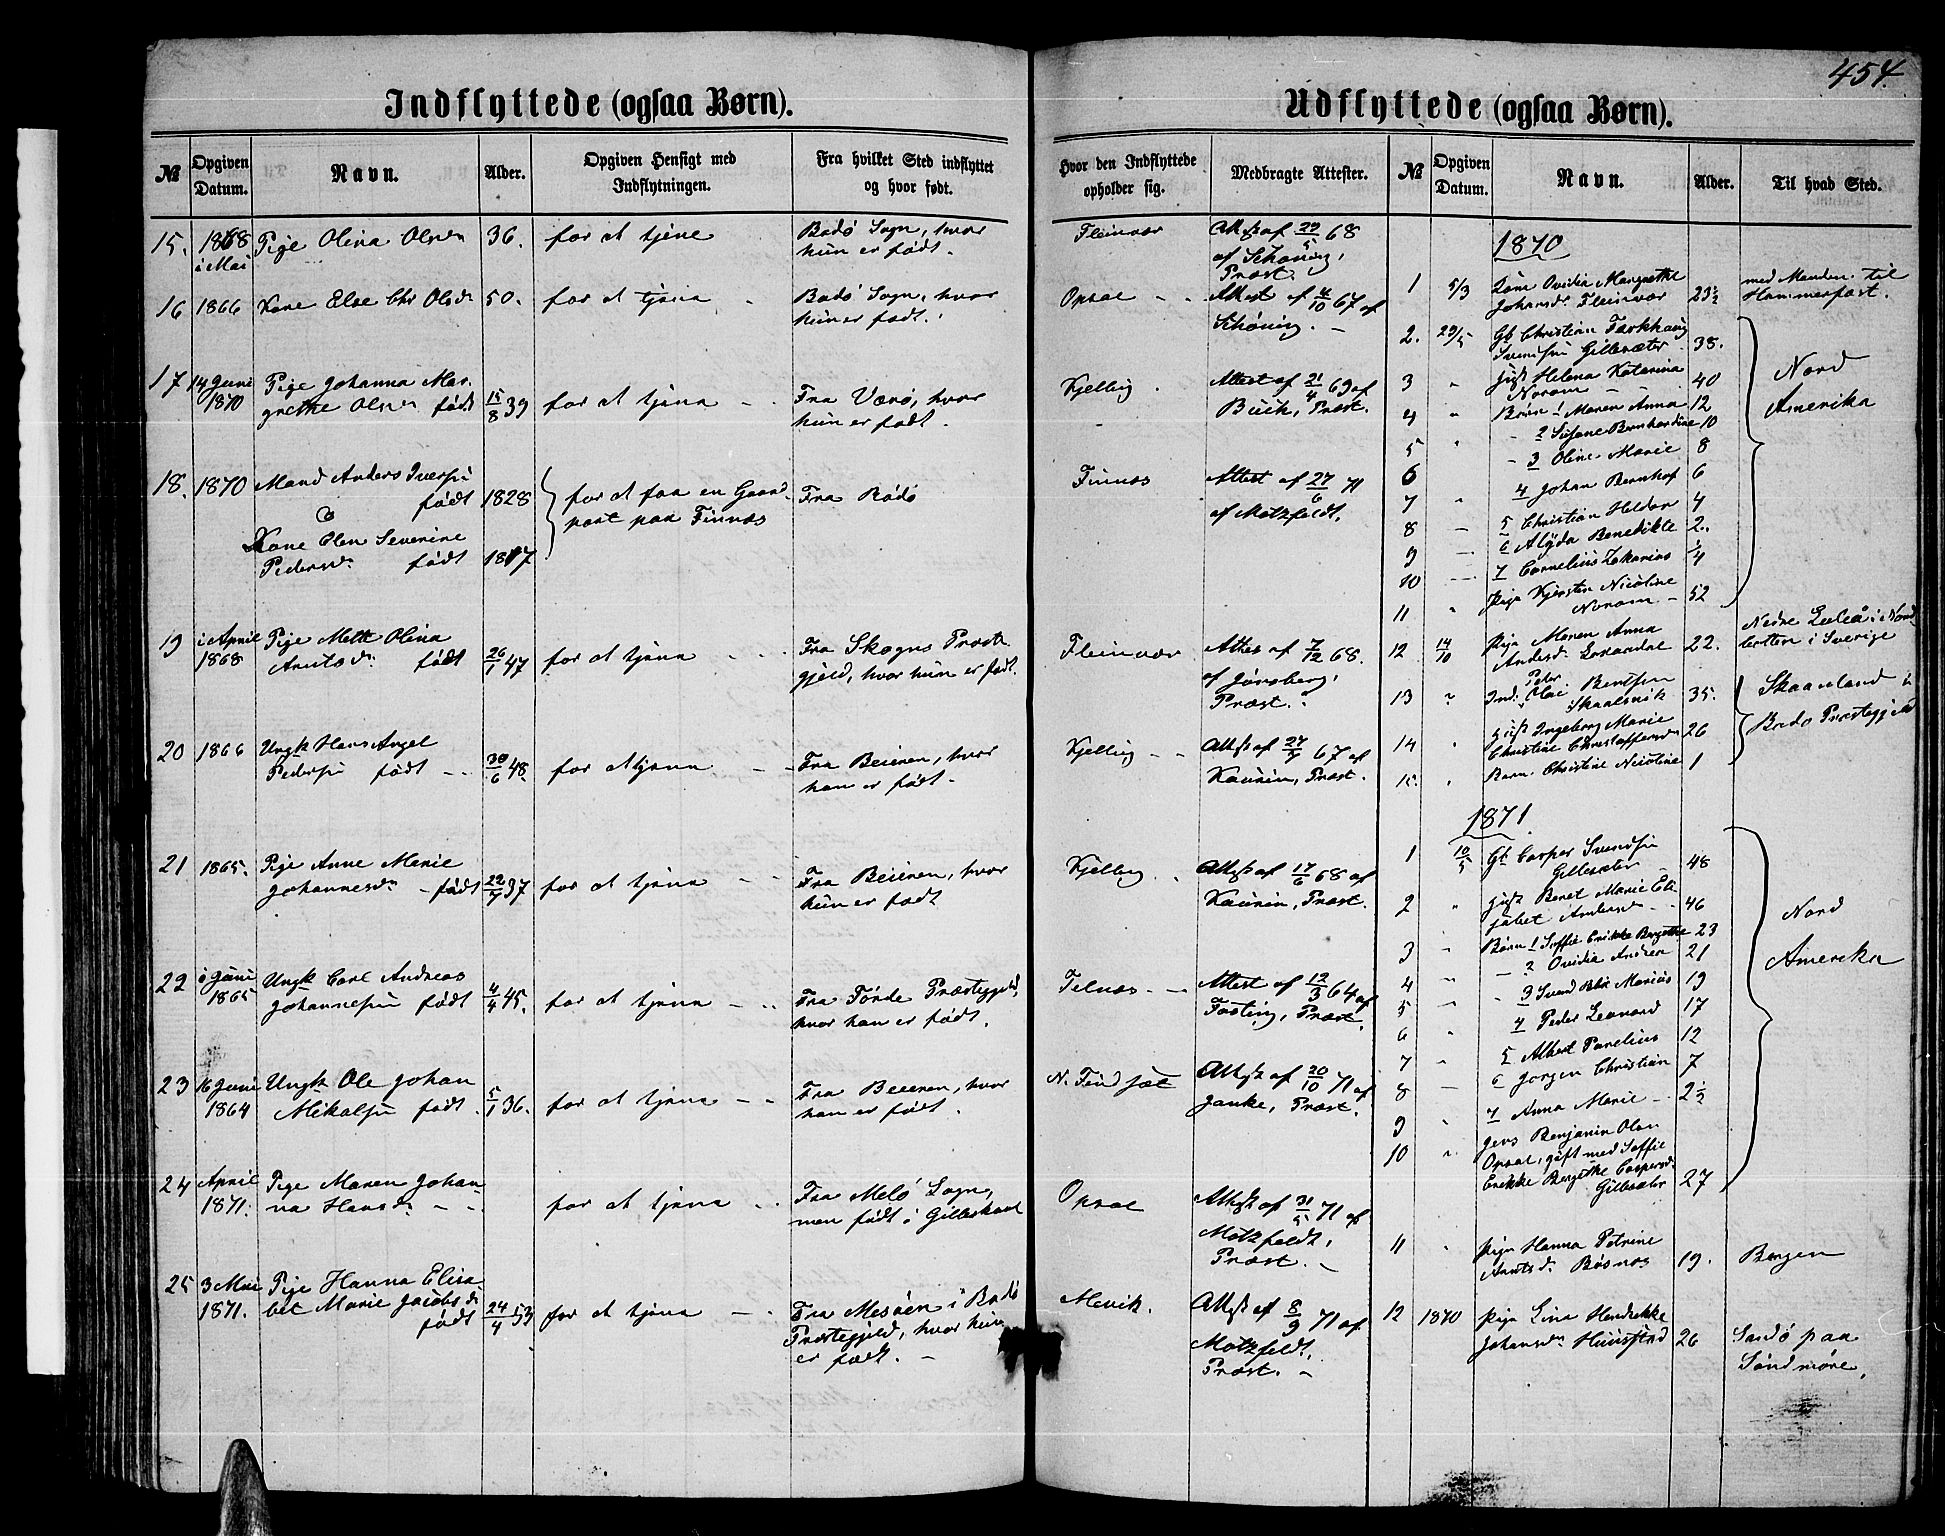 454.
Indflyttede (ogsaa Børn).
№
Opgiven Datum.
Navn.
Alder.
Opgiven Hensigt med Indflytningen.
Fra hvilket Sted indflyttet og hvor født.
15. 1868 Pige Olina Olsdr 36. for at tjene Bodø Sogn, hvor
i Mai hun er født.
16 1866 Kone Else Chr Olsdr 50. for at tjena Bodø Sogn, hvor
hun er født.
17 14 Juni Pige Johanna Mar-
1870 grethe Olsdr født 15/8 39 for at tjena Fra Værø, hvor
hun er født.
18. 1870 Mand Anders Iversen
født 1828 for at faa en Gaard- Fra Bodø
& part paa Finnæs
Kone Elen Severine
Pedersdr født 1817
19 i April Pige Mette Olina Fra Skogns Præste
1868 Arntsdr født 26/1 47 for at tjena gjeld, hvor hun er født.
20 1866 Ungk Hans Angel Fra Beieren, hvor
Pedersen født 30/6 48. for at tjena han er født.
21 1865. Pige Anne Marie Fra Beieren, hvor
Johannesdr født 22/7 37 for at tjena hun er født
22 i Juni Ungk Carl Andreas
1865 Johannesen født 4/4 45. for at tjena Fra Førde Præstegjeld,
hvor han er født.
23 16 Juni Ungk Ole Johan Fra Beieren, hvor
1864 Mikalsen født 5/1 36. for at tjena han er født.
24 April Pige Maren Johan- Fra Melø Sogn,
1871. na Hansdr for at tjena men født i Gilleskaal
25 3 Mai Pige Hanna Elisa-
1871. bet Marie Jacobsdr 24/4 53 for at tjena Fra Mesøen i Bodø
født Præstegjeld, hvor hun
er født.
Udflyttede (ogsaa Børn).
Hvor den Indflyttede opholder sig.
Medbragte Attester.
№
Opgiven Datum.
Navn.
Alder.
Til hvad Sted.
Fleinvær Attest af 29/5 68
af Schøning,
Præst.
Opsal Attest af 4/10 67 af
Schøning.
Kjelling Attest af 21/4 69 af
Buch, Præst.
Finnæs Attest af 27/6 71
af Motzfeldt.
Fleinvær Attest af 7/12 68.
af Jönsberg,
Præst.
Kjelling Attest af 27/5 67 af
Kaurin, Præst.
Kjelling Attest af 17/6 68 af
Kaurin, Præst.
Felnæs Attest af 12/3 64 af
Fasting, Præst.
N. Findsæt Attest af 20/10 71 af
Janke, Præst.
Opsal Attest af 31/5 71 af
Motzfeldt,
Præst.
Mevik. Attest af 8/9 71 af
Motzfeldt,
Præst.
1870
1 5/3 Ovidia Margrethe med Manden til
Johansdr Fleinvær 23½ Hammerfest.
2. 29/5 Gb Christian Farkhaug
Svendsen Gillesæter 38.
3 " Helena Katarina
Norom 40
4 " Børn 1 Maren Anna 12
5 " 2 Susane Bernhardine 10
6 3 Oline Marie 8
7 " 4 Johan Bernhof 6
8 5 Christian Heldor 4
9 6 Alyda Benedikte 2.
10 7 Cornelius Zakarias ¼
11 " Pige Kjersten Nicoline
Norom 52
Nord
Amerika
12 14/10 Pige Maren Anna Nedre Luleå i Nord-
Andersdr 22. botten i Sverige
13 " Ind. Peder Olai Bentsen
Skaalsvik 35.
14 " Ingeborg Marie
Christine Christoffersdr 26
15. " Barn Christine Nicoline 1
Skaanland i
Bodø Præstegjeld
1871
1 10/5 Gb Casper Svendsen
Gillesæter 48
2 " Beret Marie Eli-
sabet Andersdr 46
3 " Børn 1 Soffie Erikke Bergitte 23
4 " 2 Ovidia Andrea 21
5 " 3 Svend Blix Marius 19
6 " 4 Peder Leonard 17
7 " 5 Albert Parelius 12
8 6 Jorgen Christian 7
9 " 7 Anna Marie 2½
10 " Benjamin Olsen
Opsal, gift med Soffie
Erikke Bergitte Caspersdr
Gillesæter 27
Nord
Amerika
11 " Pige Hanna Petrine
Arntsdr Bøsnæs 19. Bergen
12 1870 Pige Lina Hendrikke
Johansdr 26 Sandø paa
Søndmøre.